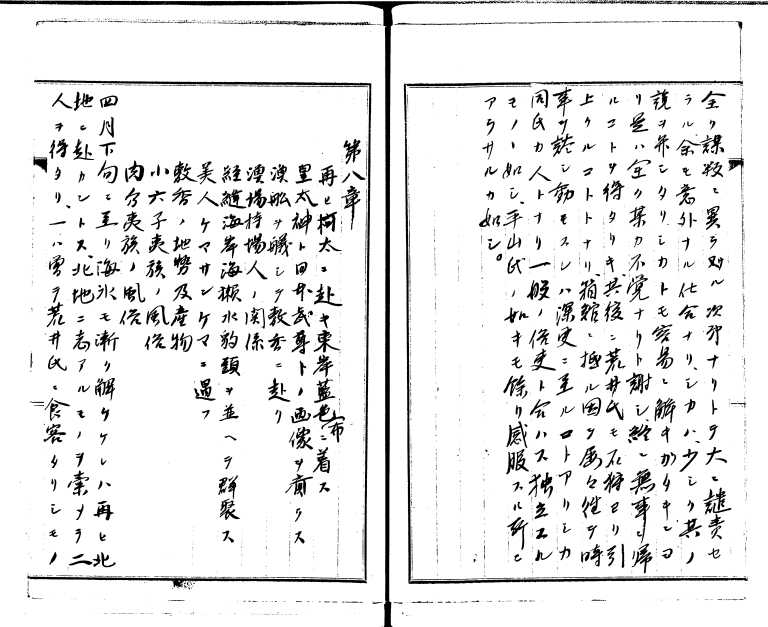 全ク謀殺ニ異ラザル次第ナリトテ大ニ譴責セ
ラル余モ意外ナル仕合ナリシカバ少シク其ノ
説ヲ弁シタリシカトモ容易ニ解キかタキヨ
リ是ハ全ク某カ不覚ナリト謝シ終ニ無事ニ帰
ルコトヲ得タリキ其後ニ荒井氏モ石狩ヨリ引
上クルコトトナリ箱館ニ極ル因テ屡々往テ時
事ヲ談シ動モスレハ深更ニ至ルコトアリシカ
同氏カ人トナリ一般ノ俗吏ト合ハス独立スル
モノノ如シ平山氏ノ如キモ餘リ感服スル所ニ
アラサルカ如シ。
第八章
再ヒ柯太ニ赴キ東岸藍色ニ着ス
皇太神ト日本武尊トノ画像ヲ
漁船ヲ艤シテ敷香ニ赴ク
漁場持場人ノ関係
鮭鱒海岸海獺水豹頭ヲ並ヘテ群聚ス
美人ケマサンケマニ遇フ
敷香ノ地勢及産物
小六子夷族ノ風俗
肉分夷族ノ風俗
四月下旬ニ至リ海氷モ漸ク解ケケレハ再ヒ北
地ニ赴カントス北地ニ志アルモノヲ索メテ二
人ヲ得タリ、一ハ曽テ荒井氏ニ食客タリシモノ